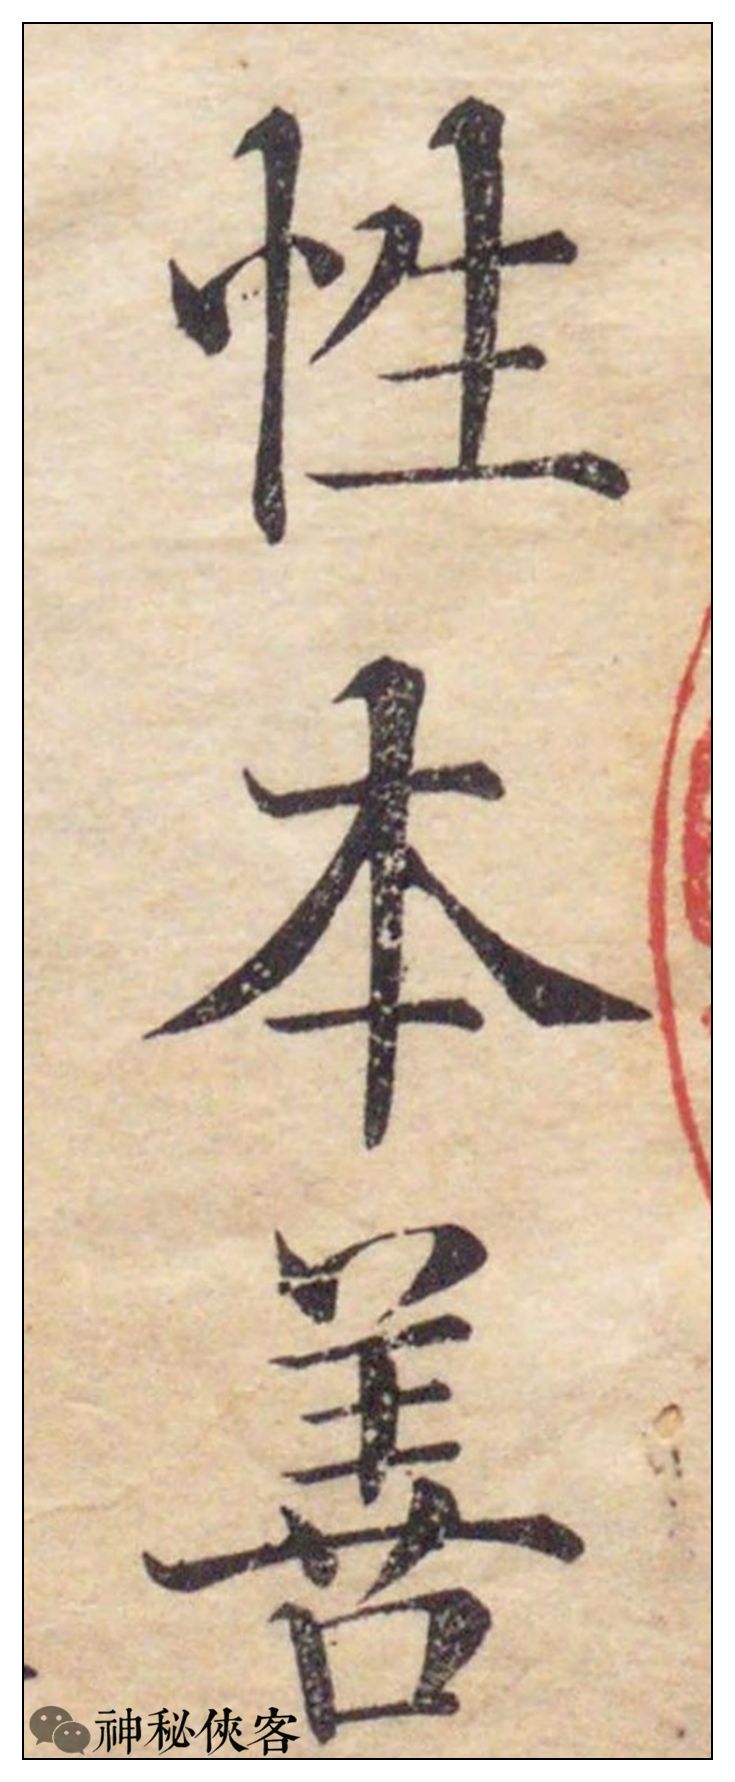 性本善
神秘俠客